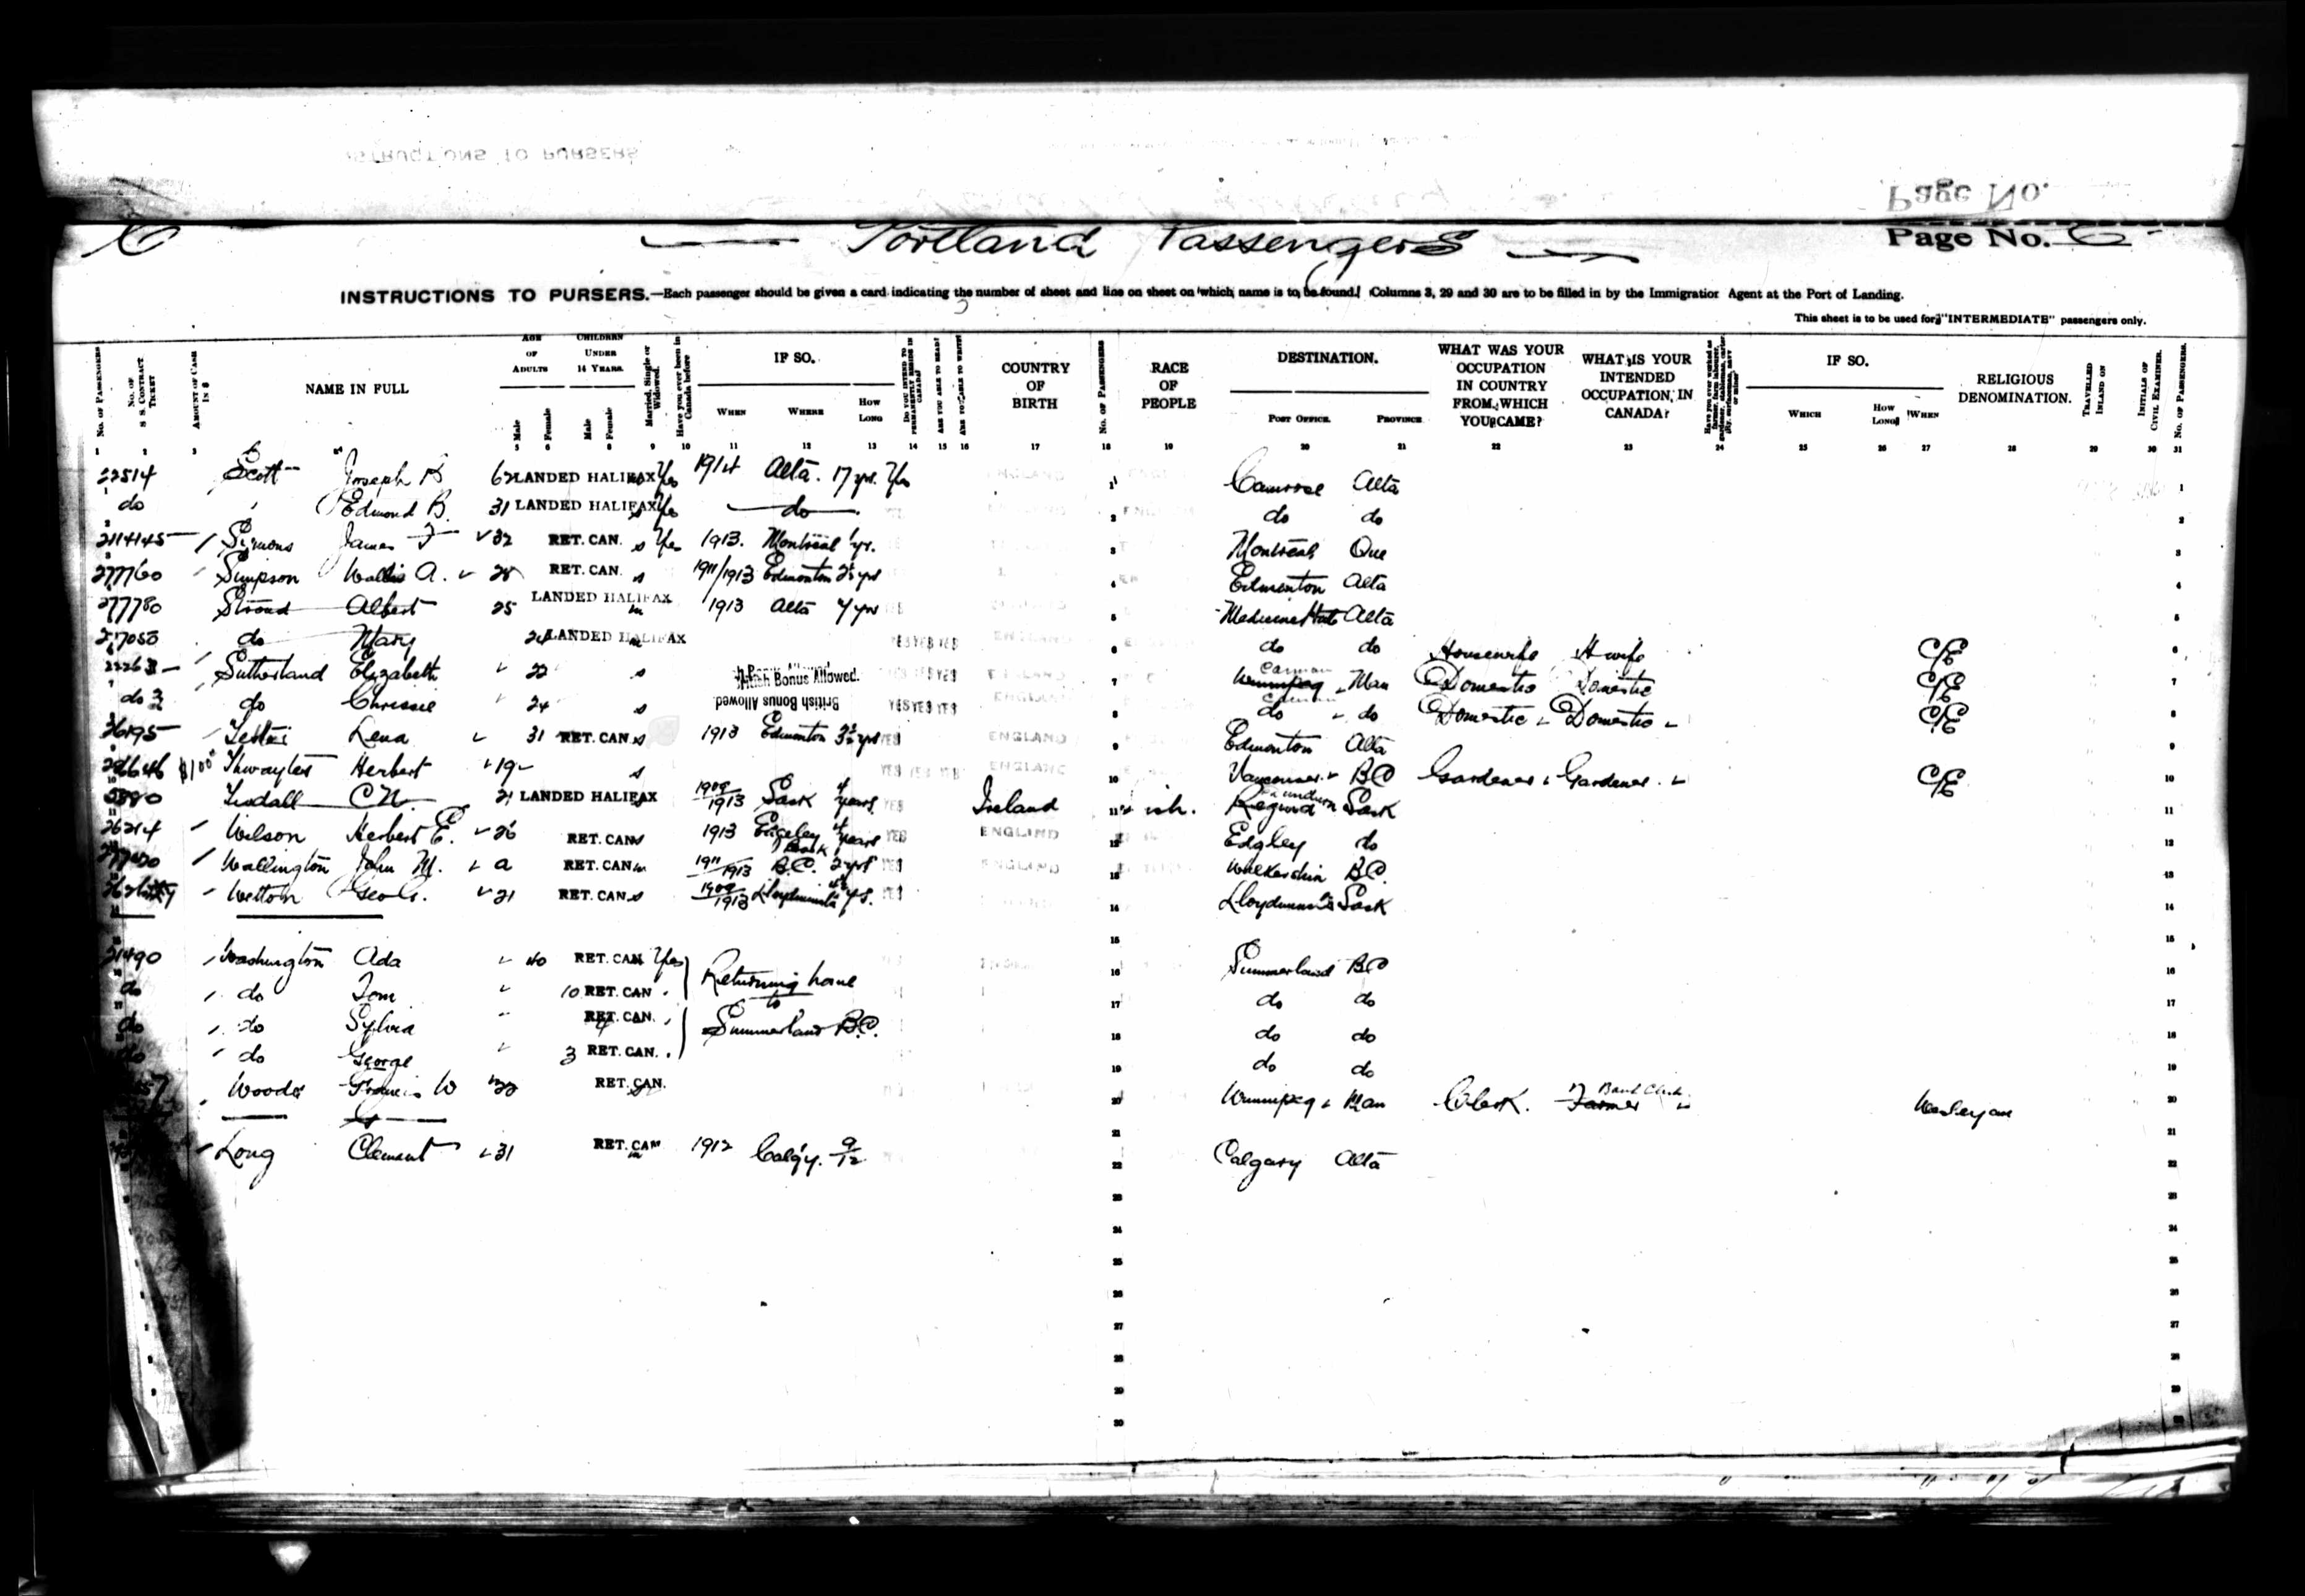 Portland Passengers
Page No. 6
INSTRUCTIONS TO PURSERS.—Each passenger should be given a card indicating the number of sheet and line on sheet on which name is to be found. Columns 3, 29 and 30 are to be filled in by the Immigration Agent at the Port of Landing.
This sheet is to be used for "INTERMEDIATE" passengers only.
No. of Passengers No. of S. S. Contract Ticket Amount of Cash in $ NAME IN FULL Age of Adults Children Under 14 Years. Married, Single or Widowed. Have you ever been in Canada before IF SO. When Where How Long Do you intend to permanently reside in Canada? Are you able to read? Are you able to write? COUNTRY OF BIRTH No. of Passengers RACE OF PEOPLE DESTINATION. Post Office. Province WHAT WAS YOUR OCCUPATION IN COUNTRY FROM WHICH YOU CAME? WHAT IS YOUR INTENDED OCCUPATION IN CANADA? IF SO. Which How Long When RELIGIOUS DENOMINATION. Travelled Inland on Initials of Civil Examiner. No. of Passengers.
Male Female Male Female
1 2 3 5 6 7 8 9 10 11 12 13 14 15 16 17 18 19 20 21 22 23 24 25 26 27 28 29 30 31
22514 Scott Joseph B 62 LANDED HALIFAX Yes 1914 Alta. 17 yrs. Yes ENGLAND 1 Camrose Alta 1
do " Edmond B. 31 LANDED HALIFAX s Yes do 2 do do 2
Simons James F 32 RET. CAN. s Yes 1913. Montreal yr. 3 Montreal Que 3
277760 Simpson Wallis A. 28 RET. CAN. s 1911/1913 Edmonton 2½ yrs 4 Edmonton Alta 4
277780 Stroud Albert 25 LANDED HALIFAX m 1913 Alta 4 yrs 5 Medicine Hat Alta 5
do Mary 24 LANDED HALIFAX m YES YES YES ENGLAND 6 do do Housewife H wife C/E 6
22263 Sutherland Elizabeth 22 s British Bonus Allowed. YES YES YES ENGLAND 7 Carman Winnipeg Man Domestic Domestic C/E 7
do do Chrissie 24 s British Bonus Allowed YES YES YES ENGLAND 8 do do Domestic Domestic C/E 8
Lena 31 RET. CAN. s 1913 Edmonton 3½ yrs YES ENGLAND 9 Edmonton Alta 9
$100 Thwaytes Herbert 19 s YES YES YES ENGLAND 10 Vancouver BC Gardener Gardener C/E 10
Tisdall C N. 21 LANDED HALIFAX 1909/1913 Sask 4 years. YES Ireland 11 ish. Regina Sask 11
26214 Wilson Herbert E. 26 RET. CAN. s 1913 Edgeley Sask 4 years YES ENGLAND 12 Edgley do 12
Wallington John M. a RET. CAN. m 1911/1913 B.C. 2 yrs YES ENGLAND 13 B.C. 13
Wetton Geo G. 21 RET. CAN. s 1909/1913 Lloydminster yrs. YES 14 Lloydminster Sask 14
15 15
51490 Washington Ada 40 RET. CAN Yes Returning home 16 Summerland BC 16
do do Tom 10 RET. CAN. to 17 do do 17
do do Sylvia 4 RET. CAN. Summerland B.C. 18 do do 18
do do George 3 RET. CAN. 19 do do 19
Woods Francis W 22 RET. CAN. 20 Winnipeg Man Clerk. Farmer Bank Clerk Wesleyan 20
21 21
Long Clement 31 RET. CAN m 1912 Calg'y. 9/12 22 Calgary Alta 22
23 23
24 24
25 25
26 26
27 27
28 28
29 29
30 30